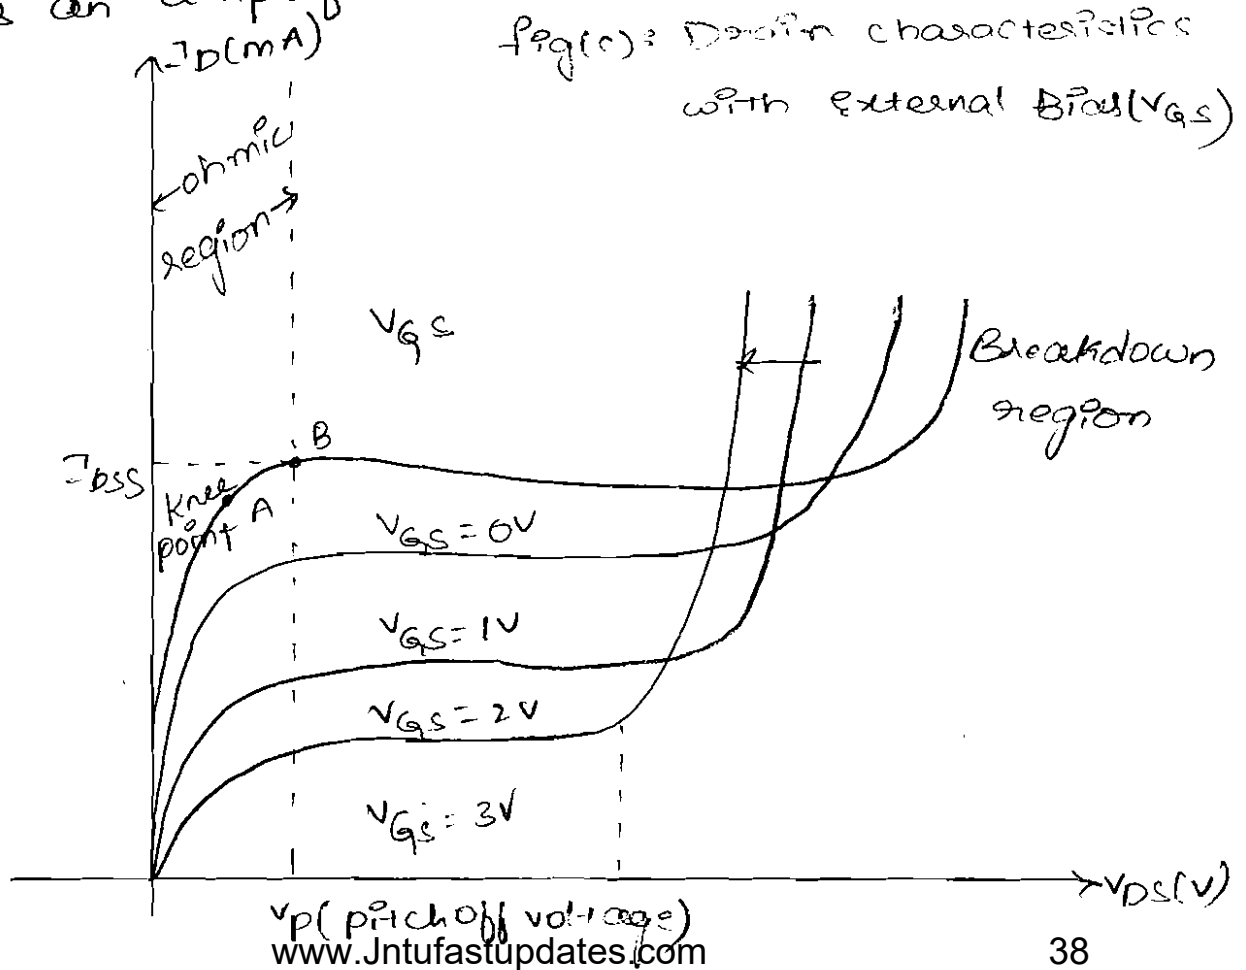 an
I_D(mA)
fig(c): Drain characteristics
with External Bias(V_GS)
ohmic
region
V_GS
Breakdown
region
B
I_DSS
Knee
point A
V_GS = 0V
V_GS = 1V
V_GS = 2V
V_GS = 3V
V_DS(V)
V_P(pitch off voltage)
www.Jntufastupdates.com
38